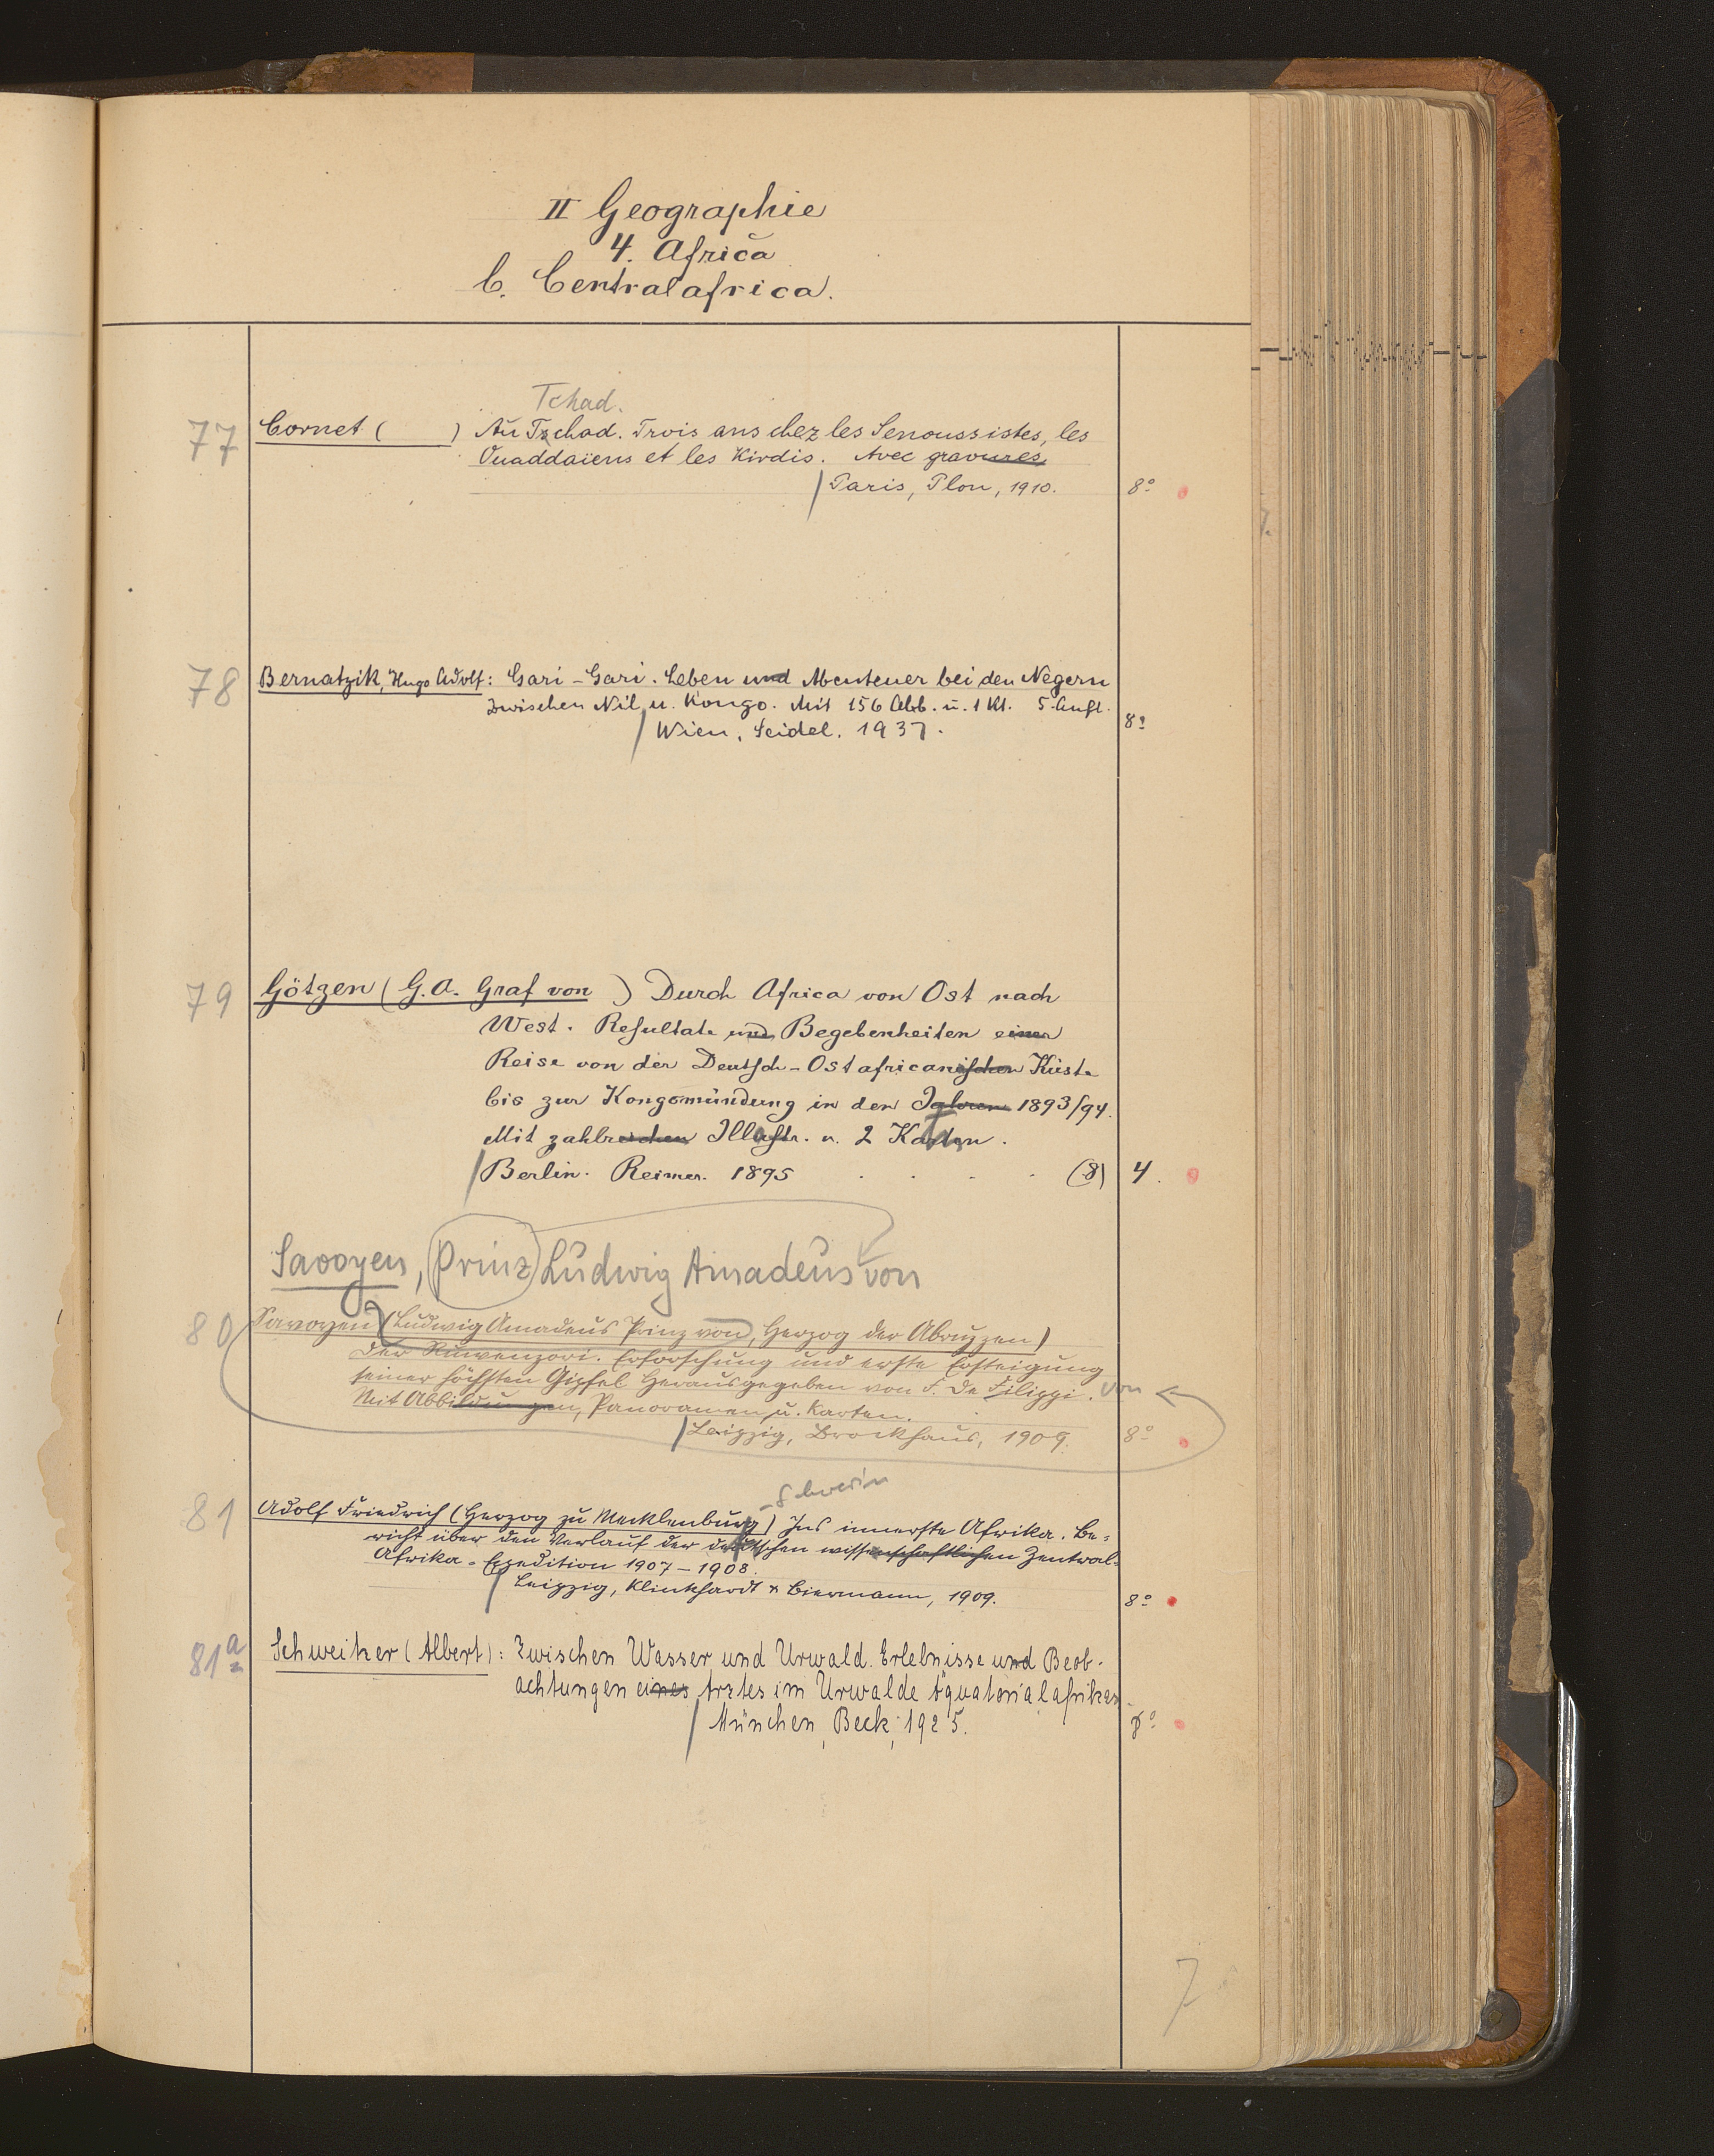 II Geographie
4. Africa
C. Centralafrica.
Tchad.
77 Cornet ( ) Au Tschad. Trois ans chez les Senoussistes, les
Ouaddaïens et les Kirdis. Avec gravures
Paris, Plon, 1910. 8°
78 Bernatzik, Hugo Adolf: Gari-Gari. Leben und Abenteuer bei den Negern
zwischen Nil u. Kongo. Mit 156 Abb. u. 1 Kt. 5. Aufl.
Wien, Seidel. 1937. 8°
79 Götzen (G. A. Graf von ) Durch Africa von Ost nach
West. Resultate und Begebenheiten einer
Reise von der Deutsch-Ostafricanischen Küste
bis zur Kongomündung in den Jahren 1893/94.
Mit zahlreichen Illustr. u. 2 Karten.
Berlin. Reimer. 1895 . . . . (8) 4.
Savoyen, Prinz Ludwig Amadeus von
80 Savoyen (Ludwig Amadeus Prinz von, Herzog der Abruzzen)
Der Ruwenzori. Erforschung und erste Ersteigung
seiner höchsten Gipfel herausgegeben von F. De Filippi. von
Mit Abbildungen, Panoramen u. Karten.
Leipzig, Brockhaus, 1909. 8°
-Schwerin
81 Adolf Friedrich (Herzog zu Mecklenburg) Ins innerste Afrika. Be=
richt über den Verlauf der deutschen wissenschaftlichen Zentral=
Afrika=Expedition 1907-1908.
Leipzig, Klinkhardt & Biermann, 1909. 8°
81a Schweitzer (Albert): Zwischen Wasser und Urwald. Erlebnisse und Beob-
achtungen eines Arztes im Urwalde Äquatorialafrikas.
München, Beck, 1925. 8°
7